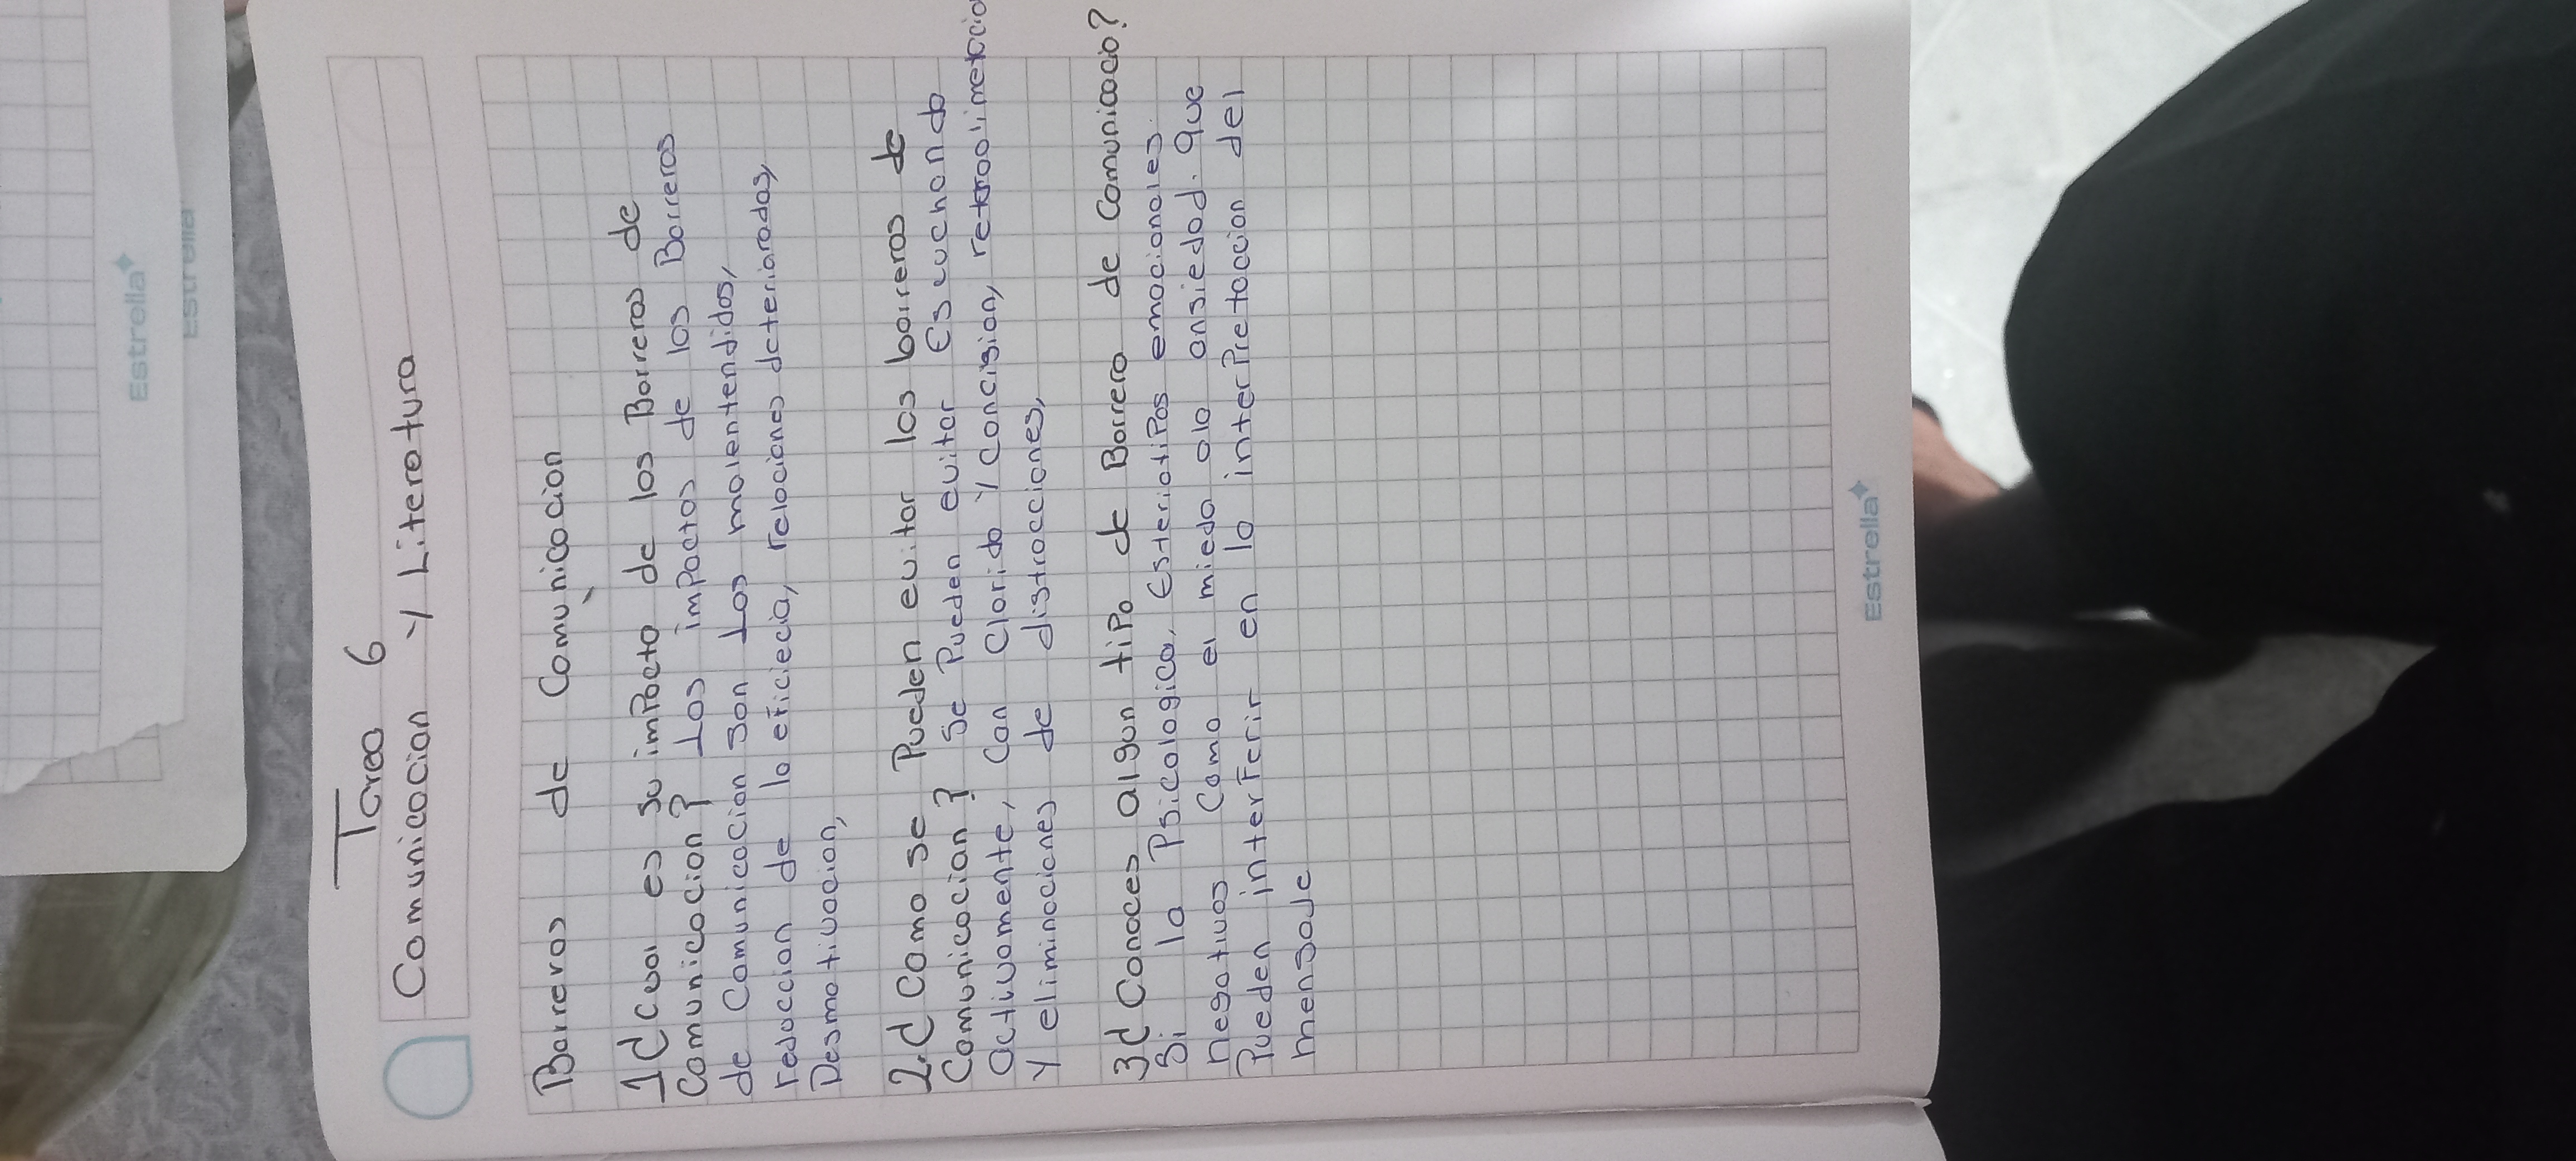 Estrella
Estrella
Tarea 6
Comunicacion y Literatura
Barreras de Comunicacion
1¿Cual es su impacto de las Barreras de
Comunicacion? Los impactos de las Barreras
de Comunicacion son Los malentendidos,
reduccion de la eficiecia, relaciones deterioradas,
Desmotivacion,
2.¿Como se Pueden evitar las barreras de
Comunicacion? Se Pueden evitar Escuchando
Activamente, Con Clarida y Concision, retroalimetacio
y eliminaciones de distracciones,
3¿Conoces algun tipo de Barrera de Comunicacio?
Si la Psicologica, Esteriotipos emocionales
negativos Como el miedo ola ansiedad. Que
Pueden interferir en la interpretaccion del
mensaje
Estrella